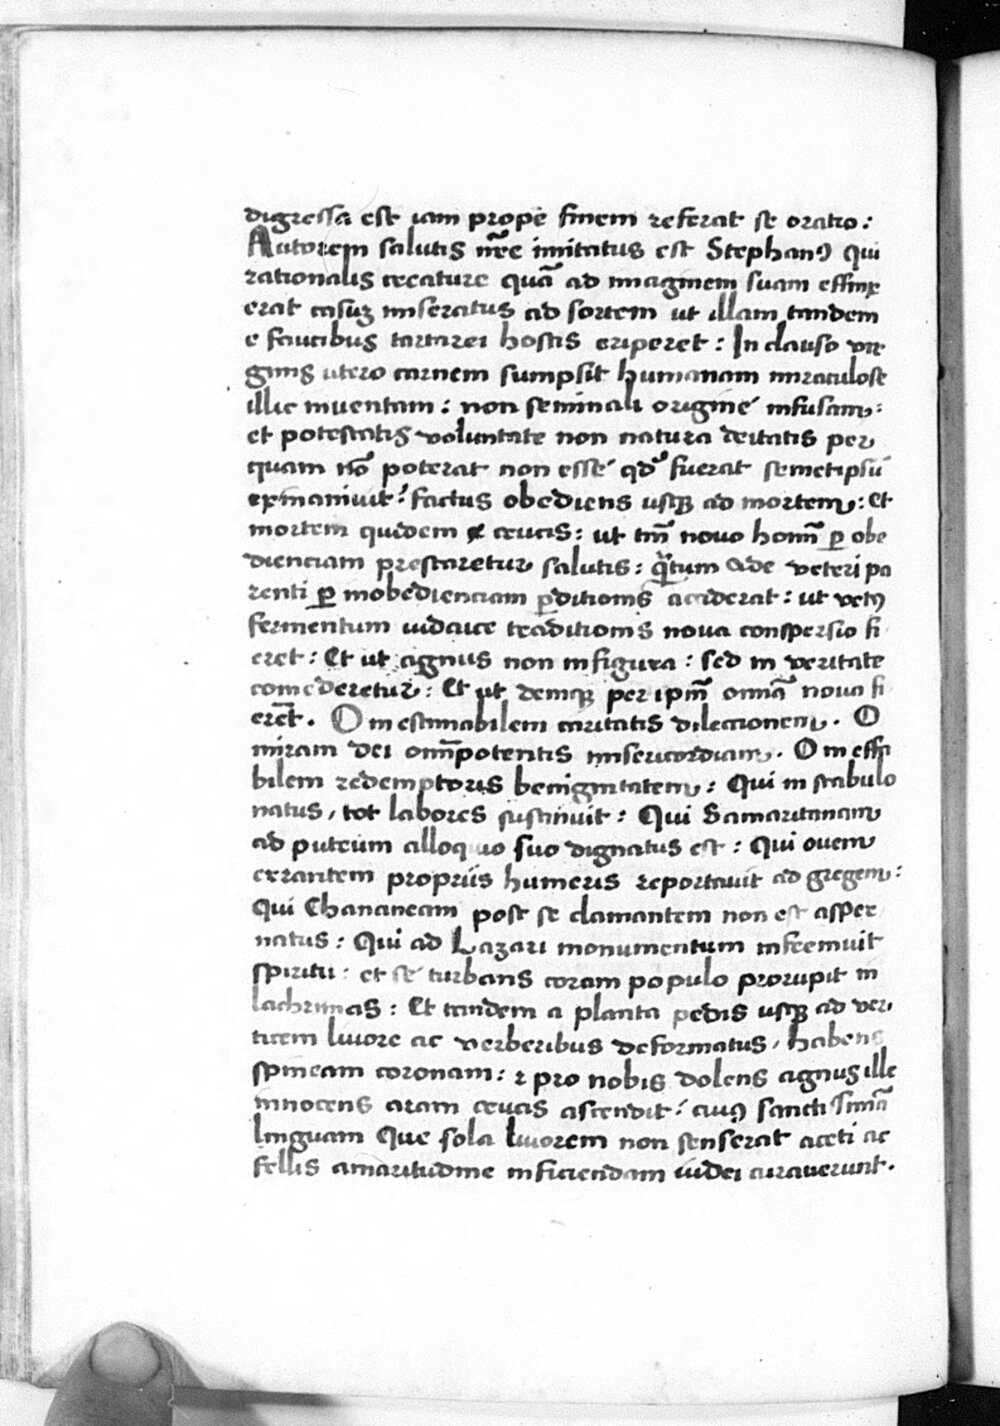 digressa est iam prope finem referat se oratio:
Autorem salutis nr̃e imitatus est Stephanꝰ qui
rationalis creature quā ad imaginem suam effinx
erat casuꝫ miseratus ad sortem ut illam tandem
e faucibus tartarei hostis eriperet: In clauso vir
ginis utero carnem sumpsit humanam miraculose
illic inuentam: non seminali origine infusam:
et potestatis voluntate non natura deitatis per
quam nō poterat non esse qdͦ fuerat semetipsū
exinaniuit: factus obediens usqꝫ ad mortem: Et
mortem quidem crucis: ut tm̄ nouo homī ꝑ obe
dienciam prestaretur salutis: qͣ̄tum ade veteri pa
renti ꝑ inobedienciam ꝑditionis acciderat: ut vetꝰ
fermentum iudaice traditionis noua conspersio fi
eret: Et ut agnus non in figura: sed in veritate
comederetur: Et ut deniqꝫ per ipm̄ omīa noua fi
erēt. O inestimabilem caritatis dilectionem. O
miram dei omīpotentis misericordiam. O ineffa
bilem redemptoris benignitatem: Qui in stabulo
natus, tot labores sustinuit: Qui Samaritanam
ad puteum alloquio suo dignatus est: Qui ouem
errantem propriis humeris reportauit ad gregem:
Qui Chananeam post se clamantem non est asper
natus: Qui ad Lazari monumentum infremuit
spiritu: et se turbans coram populo prorupit in
lachrimas: Et tandem a planta pedis usqꝫ ad ver
ticem liuore ac verberibus deformatus, habens
spineam coronam: ⁊ pro nobis dolens agnus ille
innocens aram crucis ascendit: cuiꝰ sancti simā
linguam Que sola liuorem non senserat aceti ac
fellis amaritudine inficiendam iudei curauerunt.